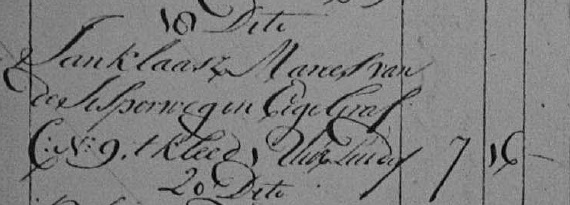 18 Dito
Jan Klaasz Manes van
de Jisperweg in Eige Graf
C: N: 9. 1 Kleed 1 Uur Luid 7 16 —
20 Dito